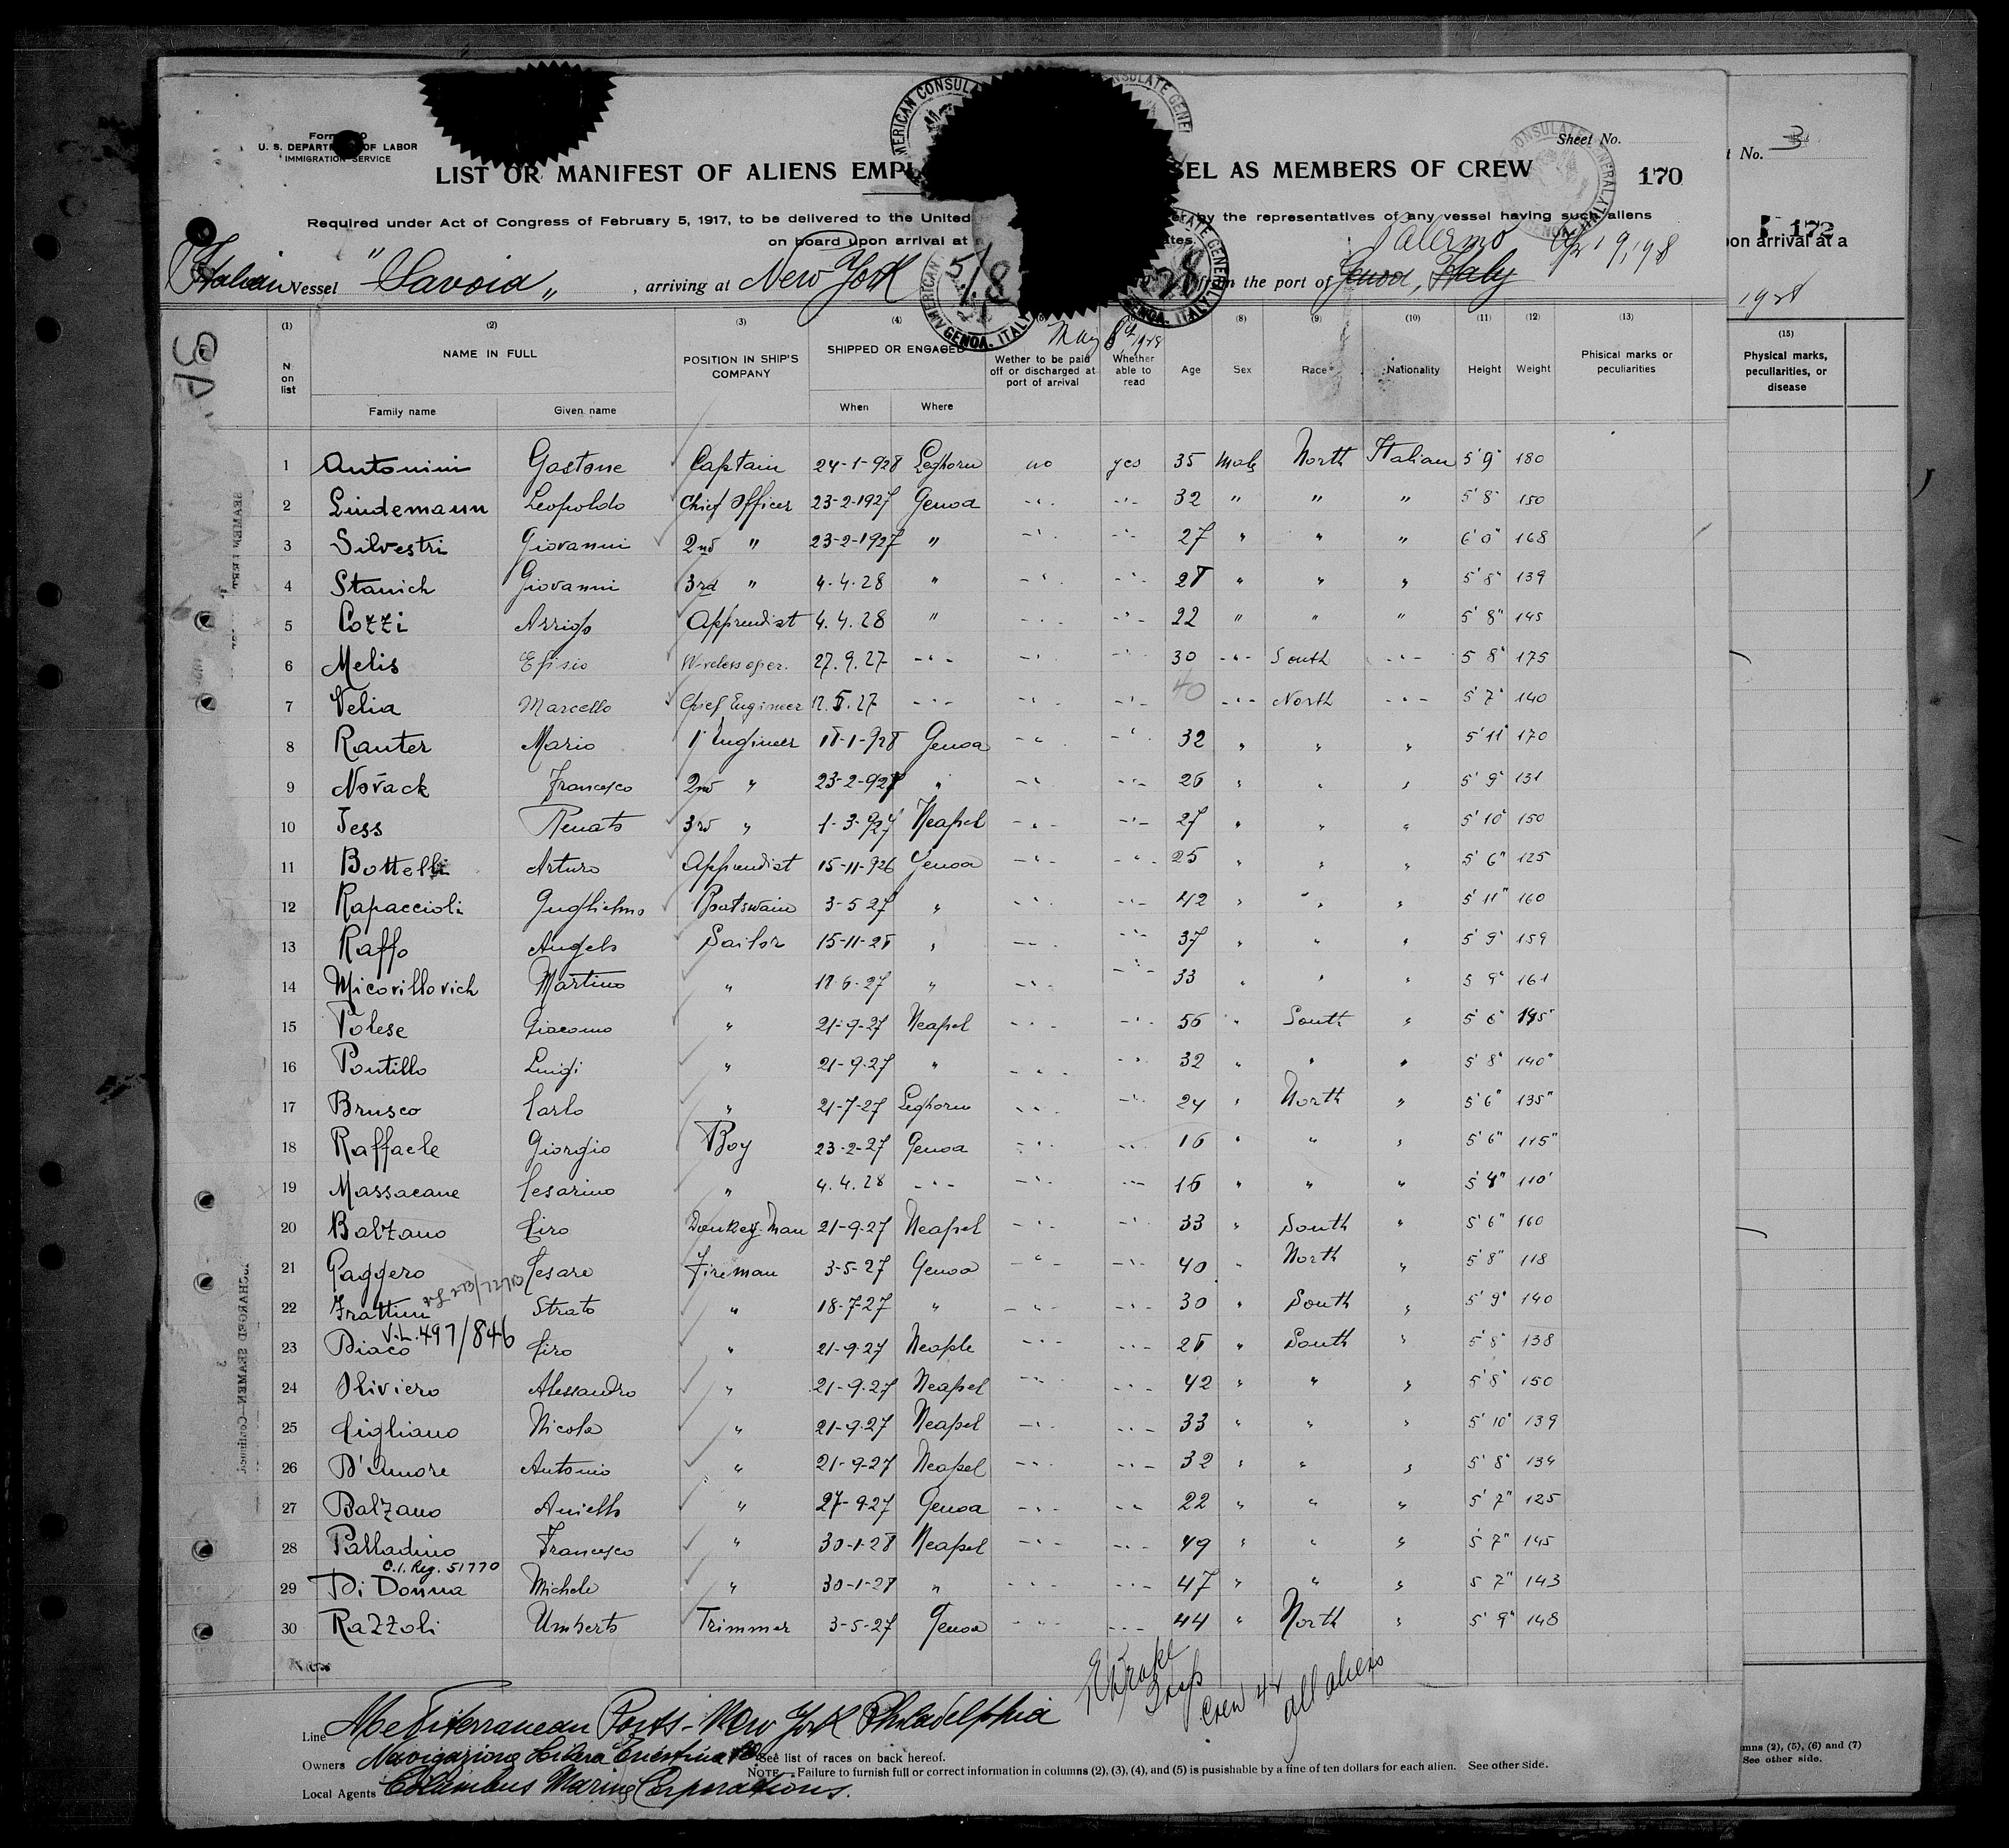 Sheet No.
U. S. DEPARTMENT OF LABOR
IMMIGRATION SERVICE
LIST OR MANIFEST OF ALIENS EMPL SEL AS MEMBERS OF CREW 170
No. 3
Required under Act of Congress of February 5, 1917, to be delivered to the United er by the representatives of any vessel having such aliens
172
on board upon arrival at ates
on arrival at a
Palermo Apr 19, 1928
Italian Vessel "Savoia" , arriving at New York 5/8 28 from the port of Genoa, Italy
AMERICAN CONSULATE GENERAL GENOA, ITALY
May 8th 1928
(1) (2) (3) (4) (8) (9) (10) (11) (12) (13) (15)
N on list NAME IN FULL POSITION IN SHIP'S COMPANY SHIPPED OR ENGAGED Wether to be paid off or discharged at port of arrival Whether able to read Age Sex Race Nationality Height Weight Phisical marks or peculiarities
Physical marks, peculiarities, or disease
Family name Given name When Where
1 Antonini Gastone Captain 24-1-928 Leghorn no yes 35 Male North Italian 5'9" 180
2 Lindemann Leopoldo Chief Officer 23-2-1927 Genoa 32 " " " 5'8" 150
3 Silvestri Giovanni 2nd " 23-2-1927 " 27 " " " 6'0" 168
4 Stanich Giovanni 3rd " 4.4.28 " 28 " " " 5'8" 139
5 Cozzi Arrigo Apprendist 4.4.28 " 22 " " " 5'8" 145
6 Melis Efisio Wireless oper. 27.9.27 30 South 5 8" 175
7 Velia Marcello Chief Engineer 12.5.27 40 North 5'7" 140
8 Ranter Mario 1' Engineer 18-1-928 Genoa 32 " " " 5'11" 170
9 Novack Francesco 2nd " 23-2-927 " 26 " " " 5'9" 131
10 Jess Renato 3rd " 1-3-927 Neapel 27 " " " 5'10" 150
11 Bottelli Arturo Apprendist 15-11-926 Genoa 25 " " " 5'6" 125
12 Rapaccioli Guglielmo Boatswain 3-5-27 " 42 " " " 5'11" 160
13 Raffo Angelo Sailor 15-11-28 " 37 " " " 5'9" 159
14 Micovillovich Martino " 17-6-27 " 33 " " " 5 9" 161
15 Polese Giacomo " 21-9-27 Neapel 56 " South " 5'6" 195
16 Pontillo Luigi " 21-9-27 " 32 " " " 5'8" 140"
17 Brusco Carlo " 21-7-27 Leghorn 24 " North " 5'6" 135"
18 Raffaele Giorgio Boy 23-2-27 Genoa 16 " " " 5'6" 115"
19 Massacane Cesarino " 4.4.28 16 " " " 5'4" 110'
20 Balzano Ciro Donkey-Man 21-9-27 Neapel 33 " South " 5'6" 160
21 Gaggero Cesare Fireman 3-5-27 Genoa 40 " North " 5'8" 118
22 Frattini Strato " 18-7-27 " 30 " South " 5'9" 140
V.L. 497/846
23 Diaco Ciro " 21-9-27 Neaple 28 " South " 5'8" 138
24 Oliviero Alessandro " 21-9-27 Neapel 42 " " " 5'8" 150
25 Cigliano Nicola " 21-9-27 Neapel 33 " " " 5'10" 139
26 D'Amore Antonio " 21-9-27 Neapel 32 " " " 5'8" 134
27 Balzano Aniello " 27-9-27 Genoa 22 " " " 5'7" 125
28 Palladino Francesco " 30-1-28 Neapel 49 " " " 5'7" 145
C.I. Reg. 51770
29 Di Donna Michele " 30-1-28 " 47 " " " 5 7" 143
30 Razzoli Umberto Trimmer 3-5-27 Genoa 44 " North " 5'9" 148
Crew 42
all aliens
Line Mediterranean Ports - New York Philadelphia
Owners Navigazione Libera Triestina
See list of races on back hereof.
NOTE.—Failure to furnish full or correct information in columns (2), (3), (4), and (5) is pusishable by a fine of ten dollars for each alien. See other side.
Local Agents Columbus Marine Corporations.
mns (2), (5), (6) and (7)
See other side.